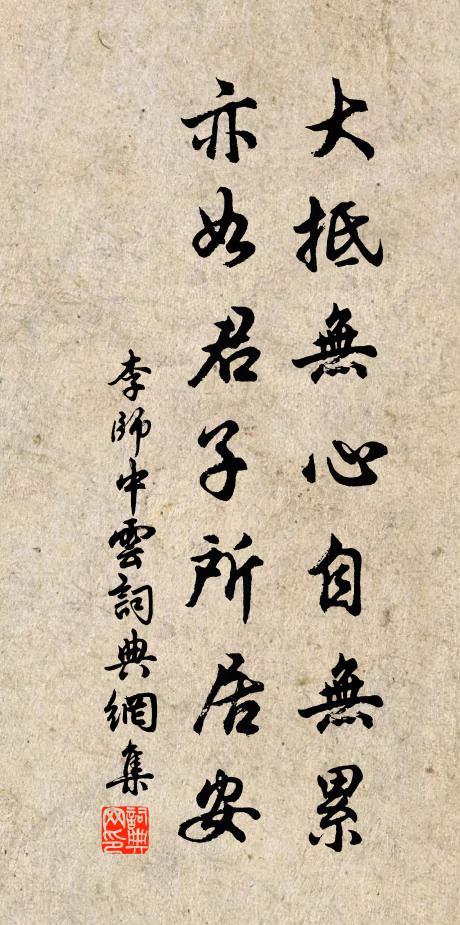 大抵無心自無累
亦如君子所居安
李師中雲詞典網集
詞典網印